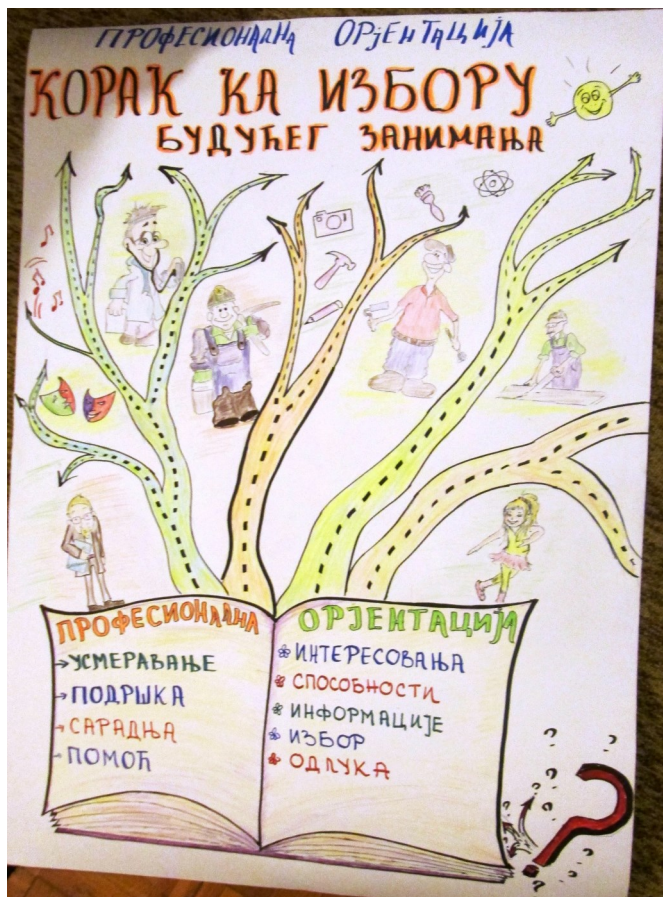 ПРОФЕСИОНАЛНА ОРЈЕНТАЦИЈА
КОРАК КА ИЗБОРУ
БУДУЋЕГ ЗАНИМАЊА
ПРОФЕСИОНАЛНА
УСМЕРАВАЊЕ
ПОДРШКА
САРАДЊА
ПОМОЋ
ОРЈЕНТАЦИЈА
ИНТЕРЕСОВАЊА
СПОСОБНОСТИ
ИНФОРМАЦИЈЕ
ИЗБОР
ОДЛУКА
?